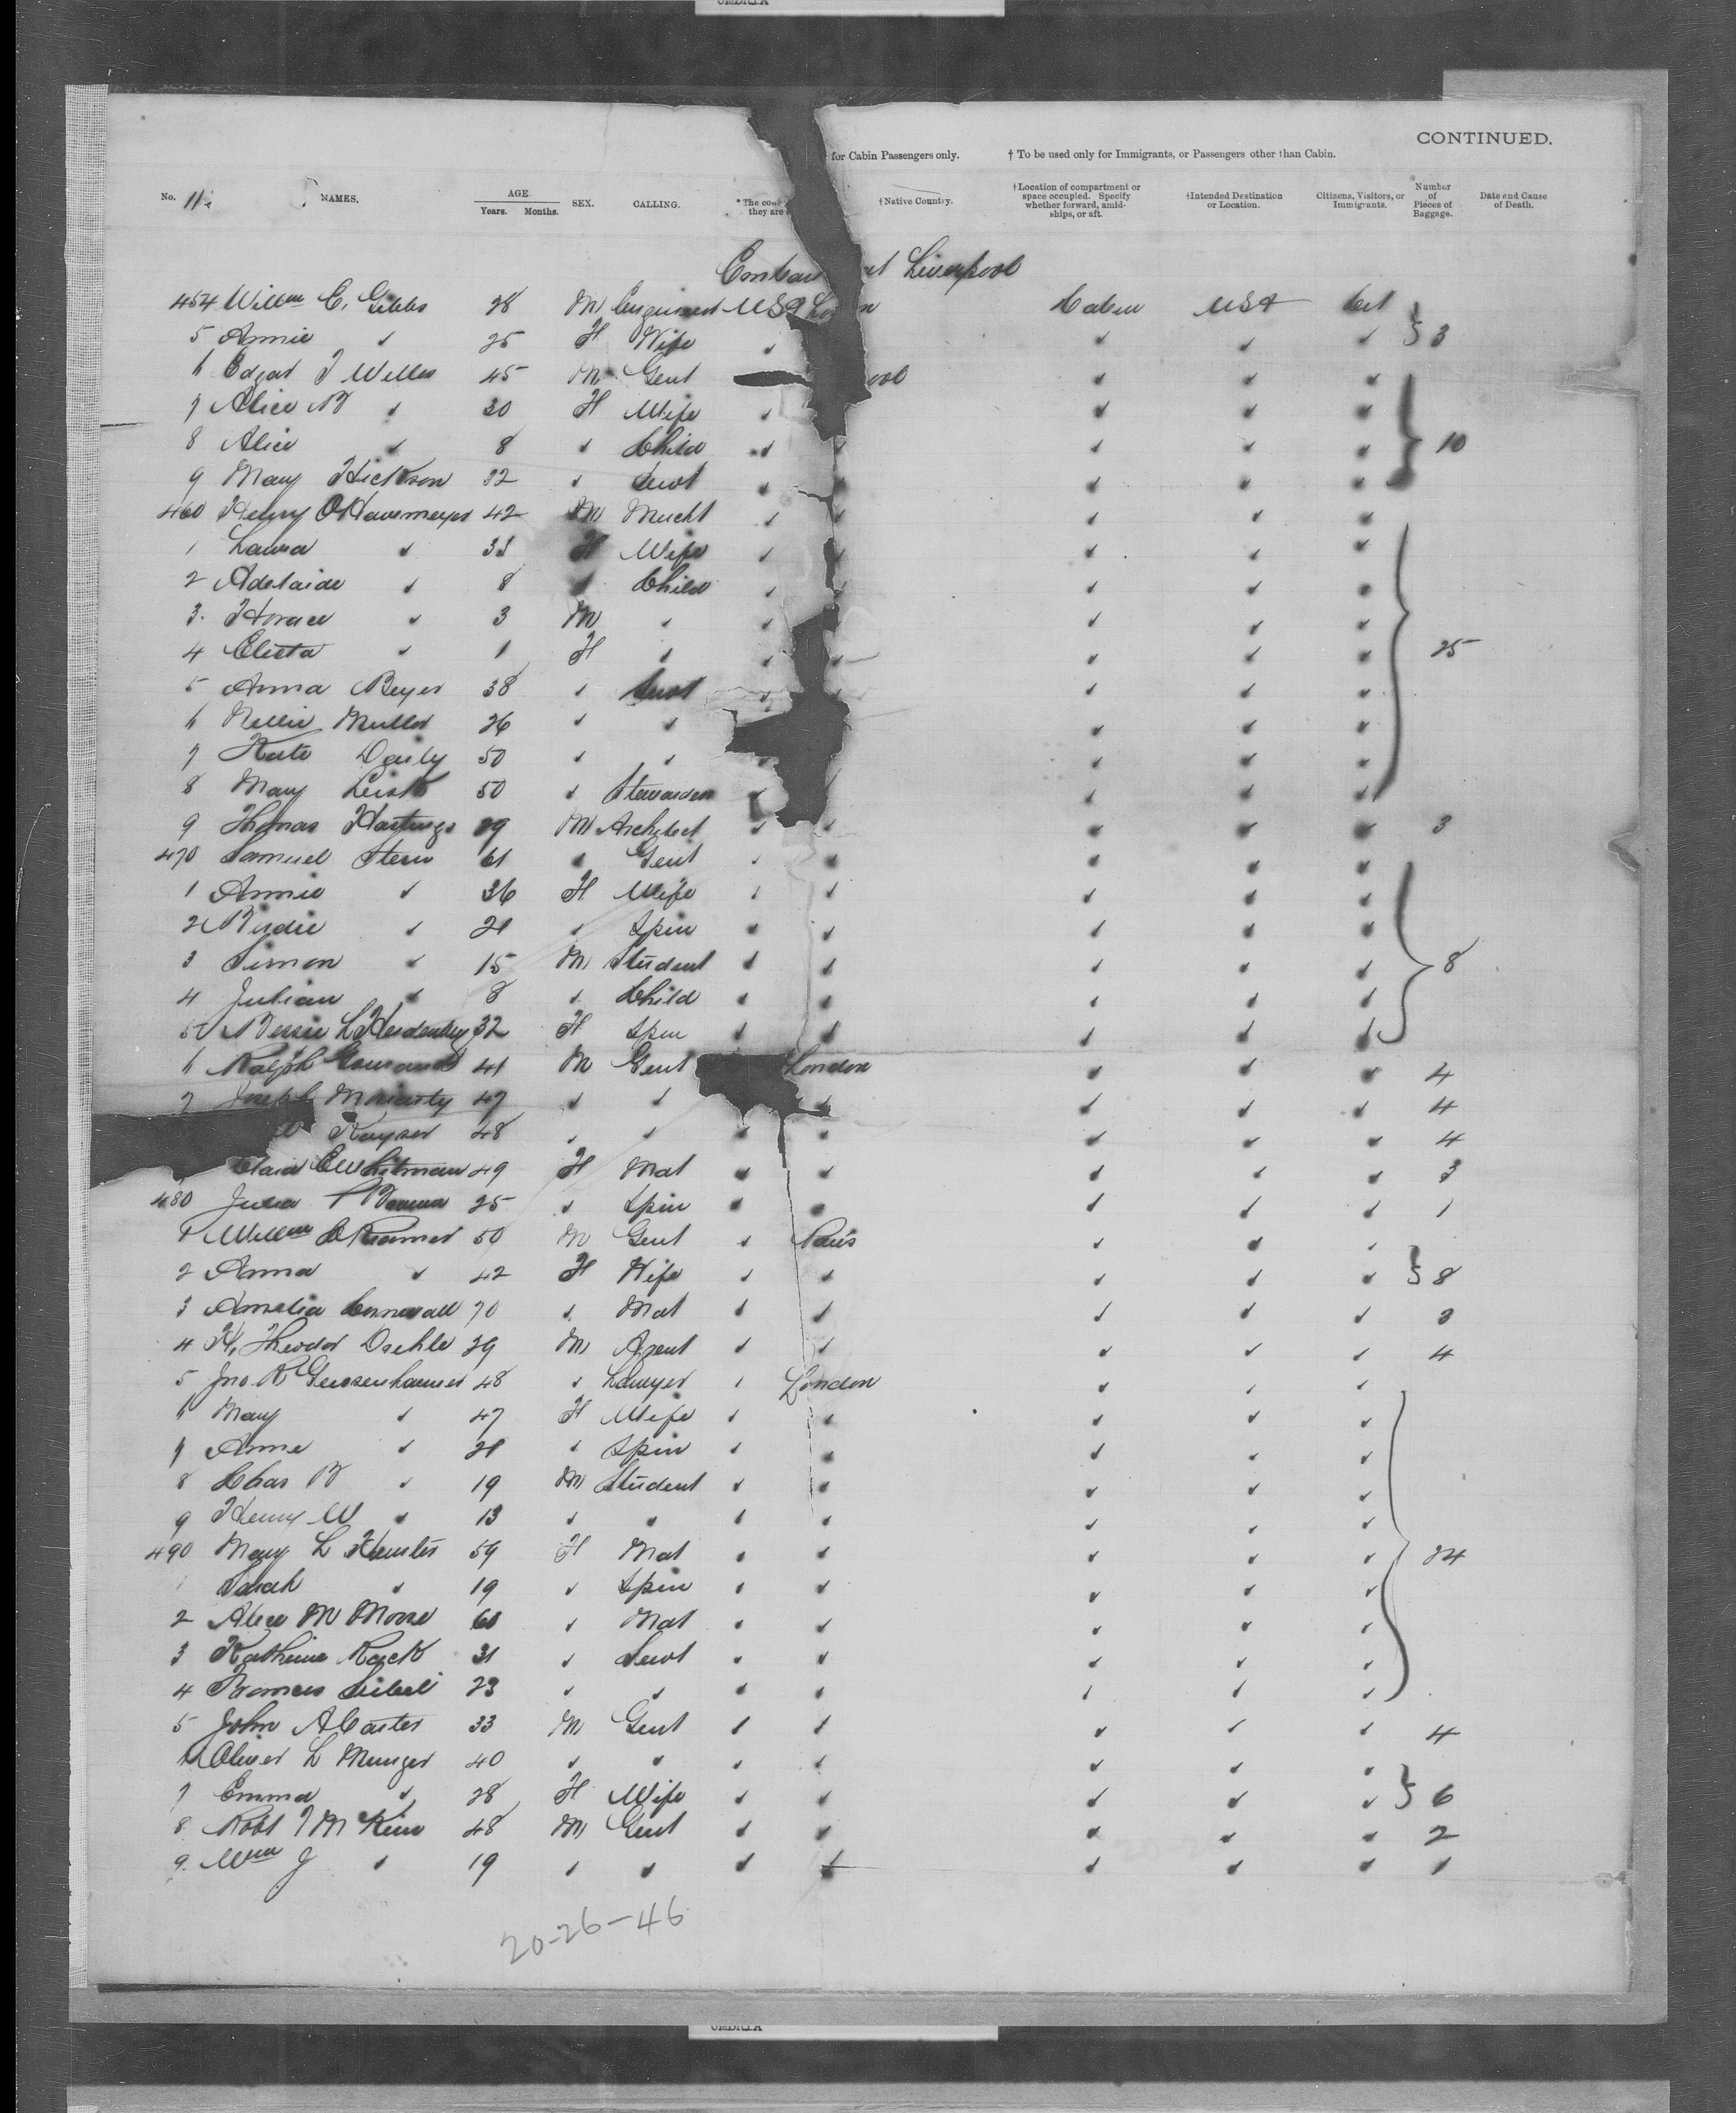 UMBRIA
CONTINUED.
for Cabin Passengers only. † To be used only for Immigrants, or Passengers other than Cabin.
No. 11. NAMES. AGE. Years. Months. SEX. CALLING. * The coun they are †Native Country. †Location of compartment or space occupied. Specify whether forward, amid-ships, or aft. †Intended Destination or Location. Citizens, Visitors, or Immigrants. Number of Pieces of Baggage. Date and Cause of Death.
Embar at Liverpool
454 Willm C. Gibbs 28 M USA Cabin USA Cit
5 Annie ✓ 25 F Wife ✓ ✓ ✓ ✓ } 3
6 Edgar T Welles 45 M Gent ool ✓ ✓ ✓
7 Alice B ✓ 30 F Wife ✓ ✓ ✓ ✓
8 Alice ✓ 8 ✓ Child ✓ ✓ ✓ ✓ ✓ } 10
9 Mary Hickson 32 ✓ Servt ✓ ✓ ✓ ✓ ✓
460 Henry O Havemeyer 42 M Mercht ✓ ✓ ✓ ✓ ✓
1 Laura ✓ F Wife ✓ ✓ ✓ ✓ ✓
2 Adelaide ✓ 8 ✓ Child ✓ ✓ ✓ ✓
3. Horace ✓ 3 M ✓ ✓ ✓ ✓ ✓
4 Electa ✓ 1 F ✓ ✓ ✓ ✓ ✓ ✓ } 25
5 Anna Beyer 38 ✓ Servt ✓ ✓ ✓ ✓
6 Nellie Muller 26 ✓ ✓ ✓ ✓ ✓
7 Kate Daily 50 ✓ ✓ ✓ ✓ ✓ ✓
8 Mary 50 ✓ Stewardess ✓ ✓ ✓ ✓
9 Thomas Hastings 29 M Architect ✓ ✓ ✓ ✓ ✓ 3
470 Samuel Stern 61 ✓ Gent ✓ ✓ ✓ ✓ ✓
1 Annie ✓ 36 F Wife ✓ ✓ ✓ ✓ ✓
2 Birdie ✓ 21 ✓ Spin ✓ ✓ ✓ ✓ ✓
3 Simon ✓ 15 M Student ✓ ✓ ✓ ✓ ✓ } 8
4 Julian ✓ 8 ✓ Child ✓ ✓ ✓ ✓ ✓
5 Bessie L 32 F Spin ✓ ✓ ✓ ✓ ✓
6 Ralph 41 M Gent London ✓ ✓ ✓ 4
7 Joseph Moriarty 47 ✓ ✓ ✓ ✓ ✓ ✓ 4
Kayser 48 ✓ ✓ ✓ ✓ ✓ ✓ ✓ 4
Clara E Whitman 49 F Mat ✓ ✓ ✓ ✓ ✓ 3
480 Julia 25 ✓ Spin ✓ ✓ ✓ ✓ ✓ 1
1 Willm C Kramer 50 M Gent ✓ Paris ✓ ✓ ✓
2 Anna ✓ 42 F Wife ✓ ✓ ✓ ✓ ✓ } 8
3 Amelia 70 ✓ Mat ✓ ✓ ✓ ✓ ✓ 3
4 H. Theodor 29 M Agent ✓ ✓ ✓ ✓ ✓ 4
5 Jno R 48 ✓ Lawyer ✓ London ✓ ✓ ✓
6 Mary ✓ 47 F Wife ✓ ✓ ✓ ✓ ✓
7 Anne ✓ 21 ✓ Spin ✓ ✓ ✓ ✓ ✓
8 Chas B ✓ 19 M Student ✓ ✓ ✓ ✓ ✓
9 Henry W ✓ 13 ✓ ✓ ✓ ✓ ✓ ✓ ✓
490 Mary L 59 F Mat ✓ ✓ ✓ ✓ ✓ } 24
1 Sarah ✓ 19 ✓ Spin ✓ ✓ ✓ ✓ ✓
2 Alice M Moore 60 ✓ Mat ✓ ✓ ✓ ✓ ✓
3 Katherine 31 ✓ Servt ✓ ✓ ✓ ✓ ✓
4 Frances 23 ✓ ✓ ✓ ✓ ✓ ✓ ✓
5 John A Carter 33 M Gent ✓ ✓ ✓ ✓ ✓ 4
6 Oliver L Munger 40 ✓ ✓ ✓ ✓ ✓ ✓ ✓
7 Emma ✓ 28 F Wife ✓ ✓ ✓ ✓ ✓ } 6
8 Robt 48 M Gent ✓ ✓ ✓ ✓ ✓ 2
9. Wm J ✓ 19 ✓ ✓ ✓ ✓ ✓ ✓ ✓ 1
20-26-46
UMBRIA